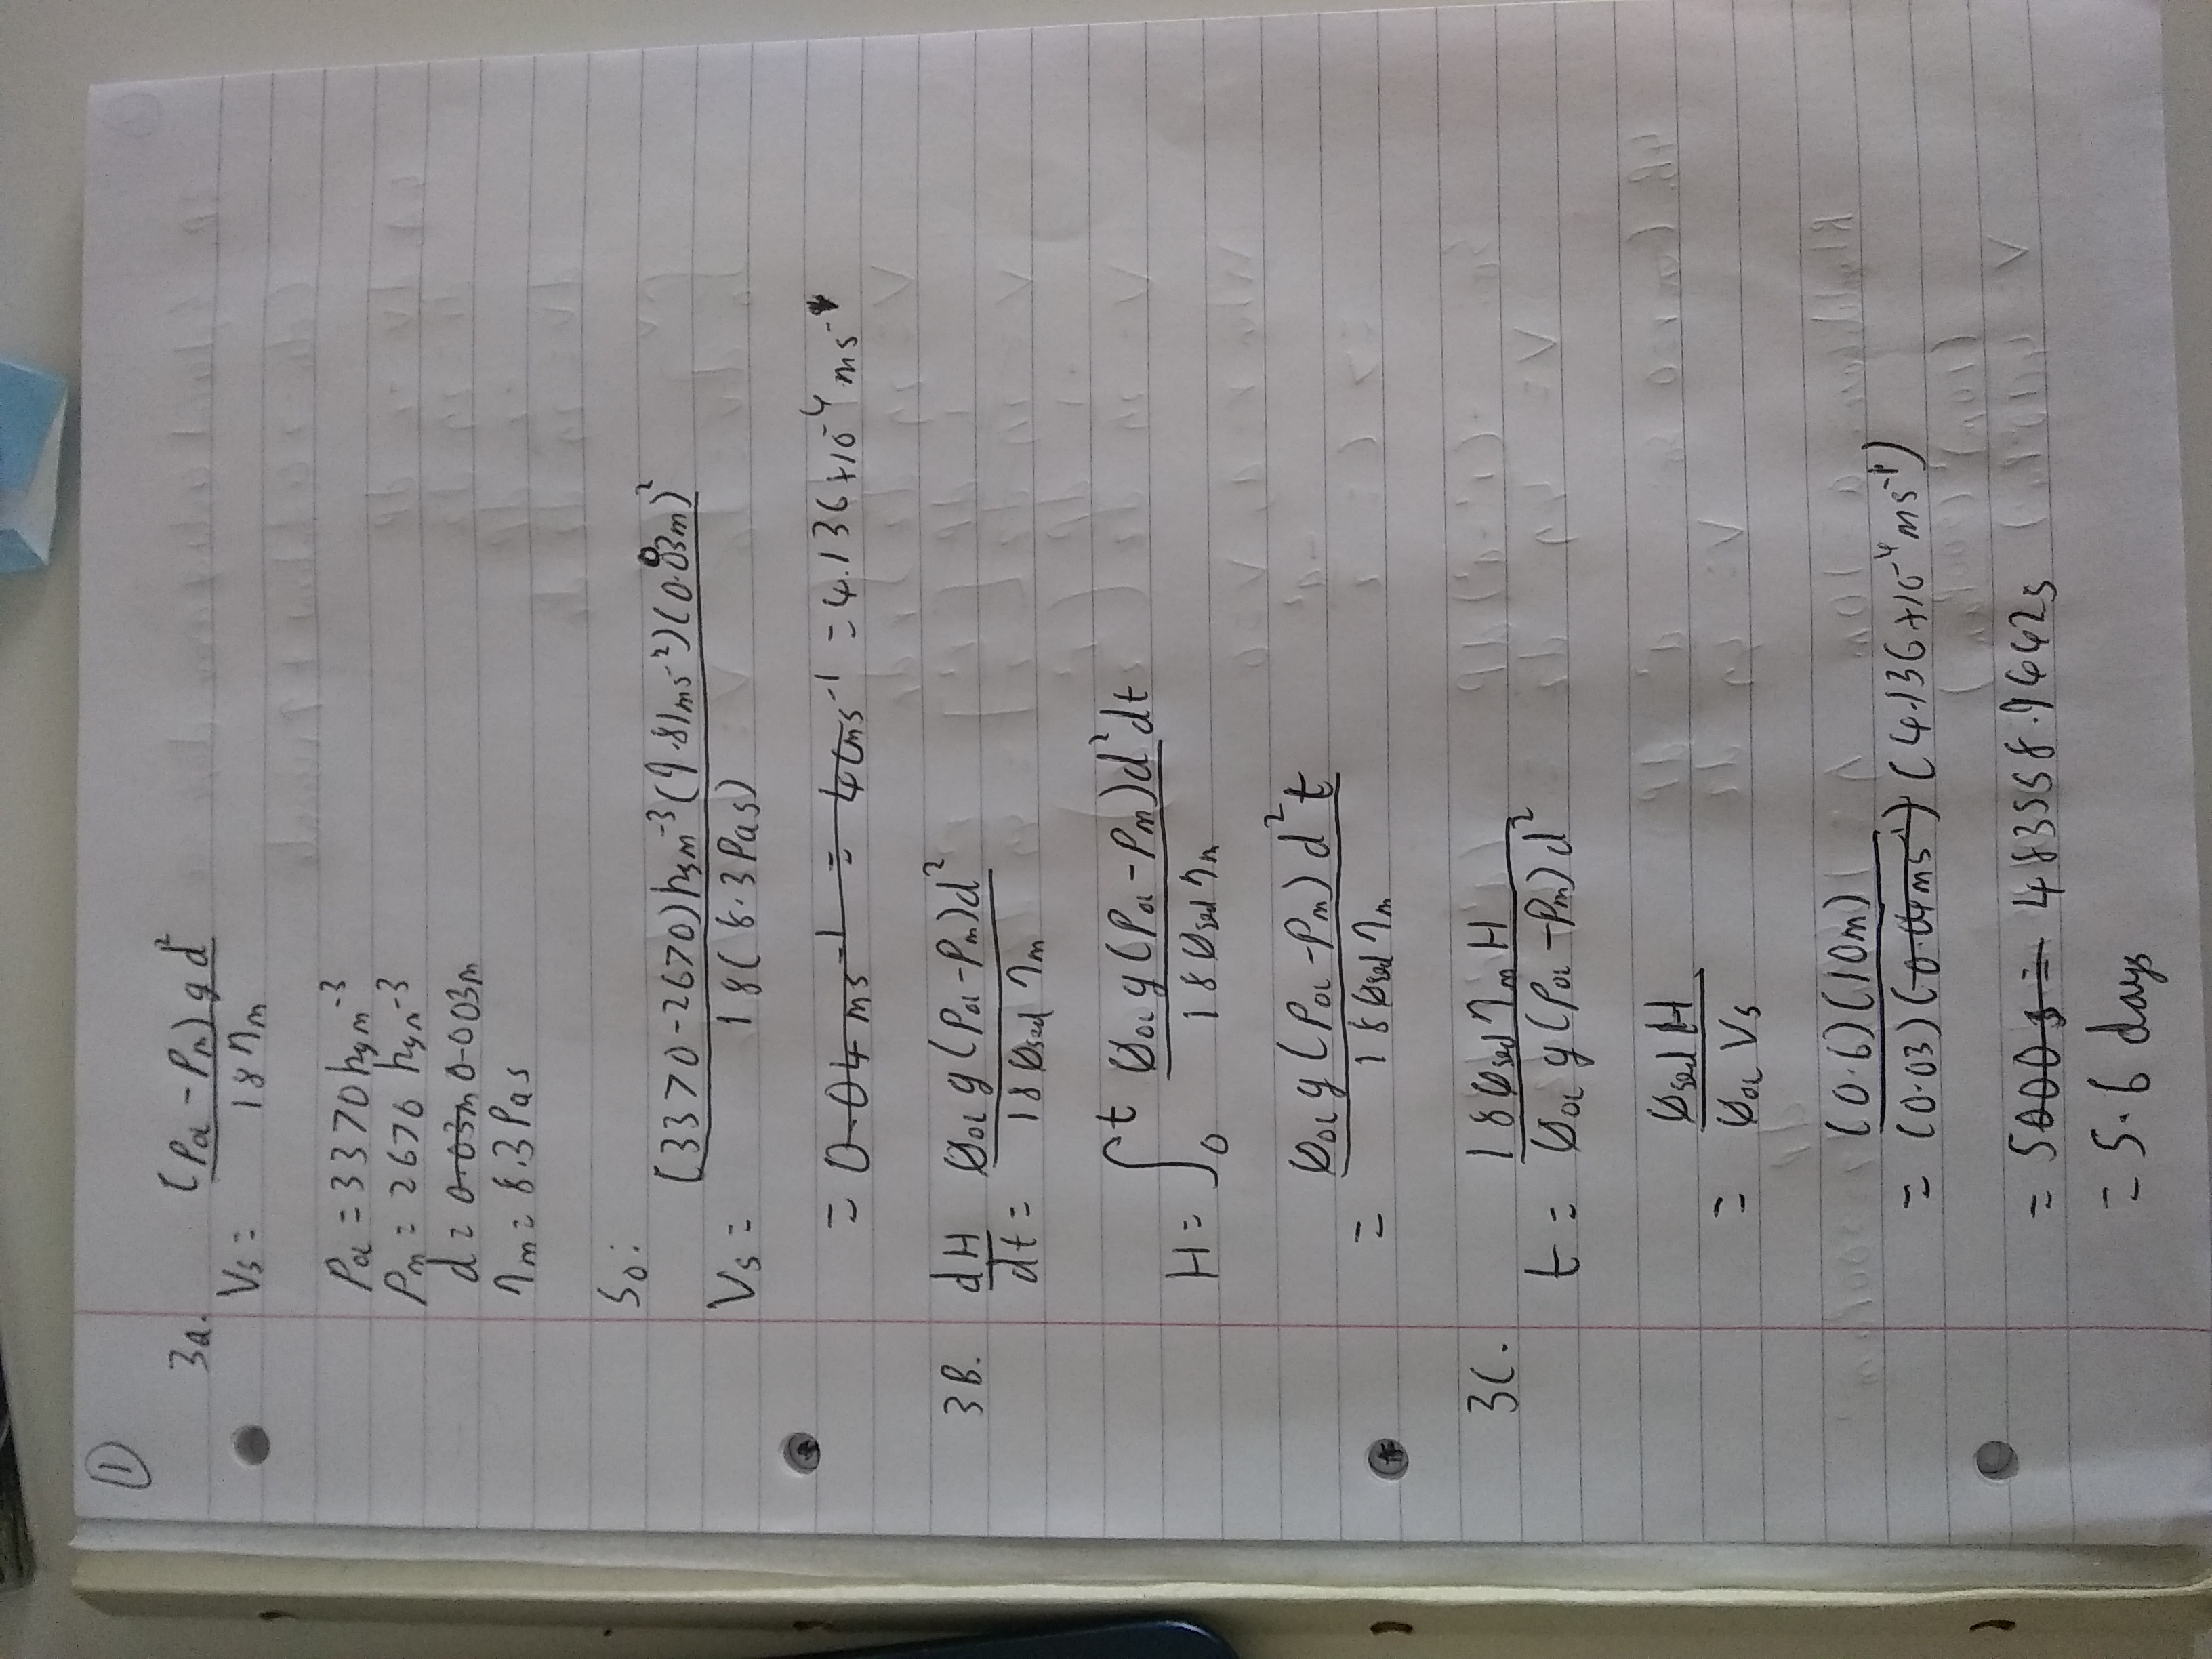 ①
3a. Vs = (ρol - ρm) g d² / 18 ηm
ρol = 3370 kgm⁻³
ρm = 2670 kgm⁻³
d = 0.03m 0.003m
ηm = 8.3 Pas
So:
Vs = (3370 - 2670) kgm⁻³ (9.81ms⁻²)(0.003m)² / 18(8.3Pas)
= 0.04 ms⁻¹ = 4cms⁻¹ = 4.136×10⁻⁴ ms⁻¹
3B. dH/dt = Øol g (ρol - ρm) d² / 18 Øsed ηm
H = ∫₀ᵗ Øol g (ρol - ρm) d² dt / 18 Øsed ηm
= Øol g (ρol - ρm) d² t / 18 Øsed ηm
3C. t = 18 Øsed ηm H / Øol g (ρol - ρm) d²
= Øsed H / Øol Vs
= (0.6)(10m) / (0.03)(0.04ms⁻¹)(4.136×10⁻⁴ms⁻¹)
= 5000s = 483558.9642s
= 5.6 days